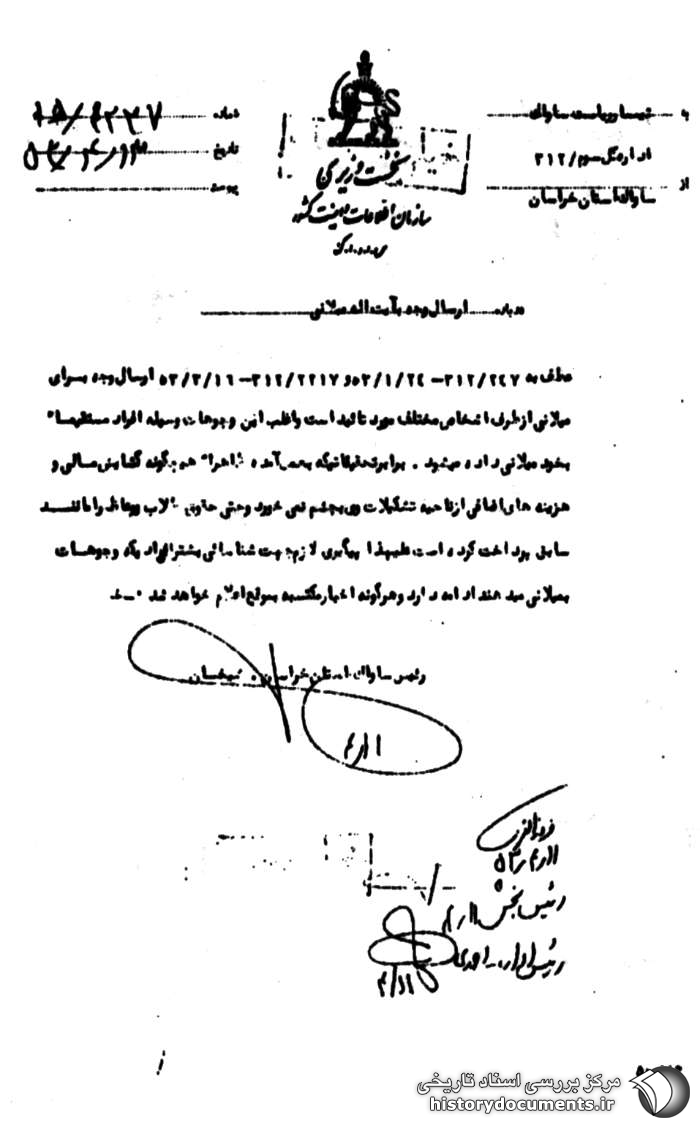 به تیمسار ریاست ساواک
اداره کل سوم/۳۱۲
از ساواک استان خراسان
نخست وزیری
سازمان اطلاعات و امنیت کشور
شماره
تاریخ
پیوست
درباره ارسال وجه به آیت اله میلانی
عطف به ۳۱۲/۲۴۷ – ۵۳/۱/۲۴ و ۳۱۲/۲۲۱۷ – ۵۳/۳/۱۶ ارسال وجه برای
میلانی از طرف اشخاص مختلف مورد تائید است و اغلب این وجوهات وسیله افراد مستقیما"
بخود میلانی داده میشود . برابر تحقیقاتیکه بعمل آمده ظاهرا" هیچگونه گشایش مالی و
هزینه های اضافی از ناحیه تشکیلات وی بچشم نمی خورد و حتی حقوق طلاب و وعاظ را مانند
سابق پرداخت کرده است علیهذا پیگیری لازم جهت شناسائی بیشتر افرادیکه وجوهات
بمیلانی میدهند ادامه دارد و هرگونه اخبار مکتسبه بموقع اعلام خواهد شد
رئیس ساواک استان خراسان . شیخان
رئیس بخش
رئیس اداره
مرکز بررسی اسناد تاریخی
historydocuments.ir